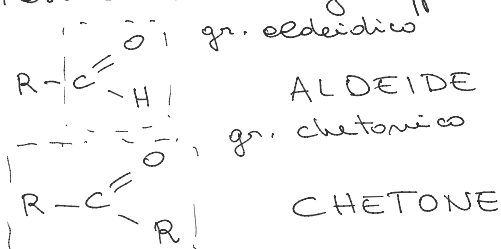 gr. aldeidico
O
R - C
H
ALDEIDE
gr. chetonico
O
R - C
R
CHETONE